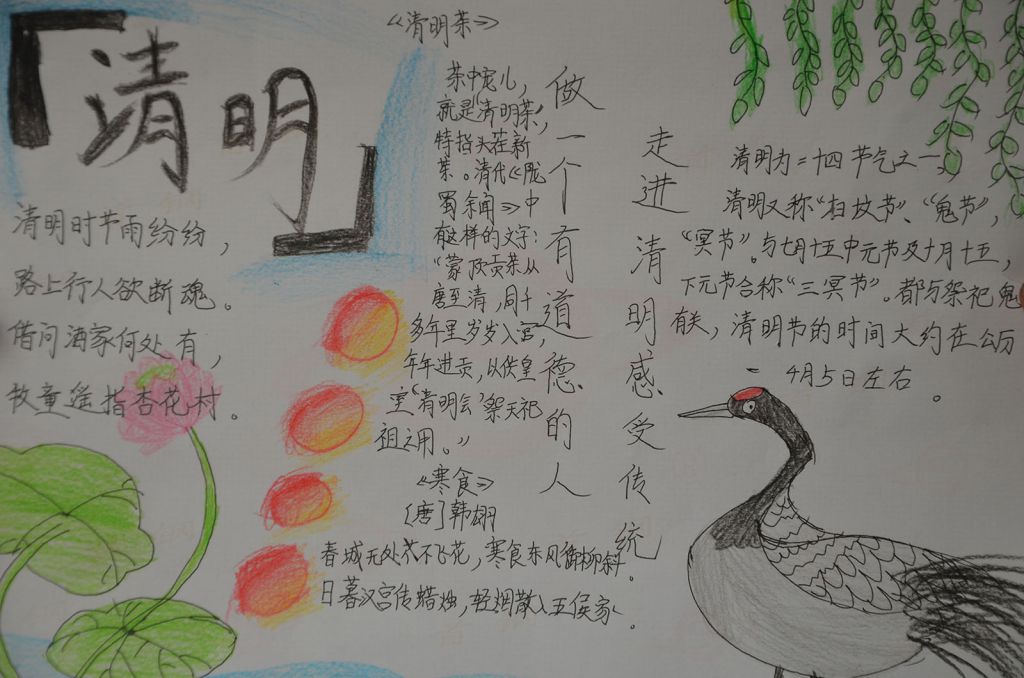 「清明」
清明时节雨纷纷，
路上行人欲断魂。
借问酒家何处有，
牧童遥指杏花村。
《清明茶》
茶中宠儿，
就是清明茶，
特指头茬新
茶。清代《陇
蜀余闻》中
有这样的文字：
“蒙顶贡茶从
唐至清，同千
多年里岁岁入宫，
年年进贡，以供皇
室‘清明会’祭天祀
祖之用。”
《寒食》
[唐]韩翃
春城无处不飞花，寒食东风御柳斜。
日暮汉宫传蜡烛，轻烟散入五侯家。
做一个有道德的人
走进清明感受传统
清明为二十四节气之一，
清明又称“扫坟节”、“鬼节”，
“冥节”。与七月十五中元节及十月十五，
下元节合称“三冥节”。都与祭祀鬼
有关，清明节的时间大约在公历
4月5日左右。